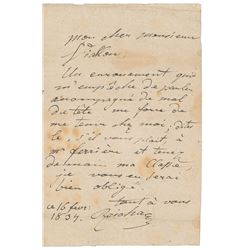 mon cher monsieur
Un enrouement qui
m'empêche de parler
accompagné de mal
de tête me force de
me tenir chez moi; dites
le s'il vous plait, à
mr ferrière et
demain ma classe,
je vous en serai
bien obligé.
tout à vous
ce 16 fevr.
1834.